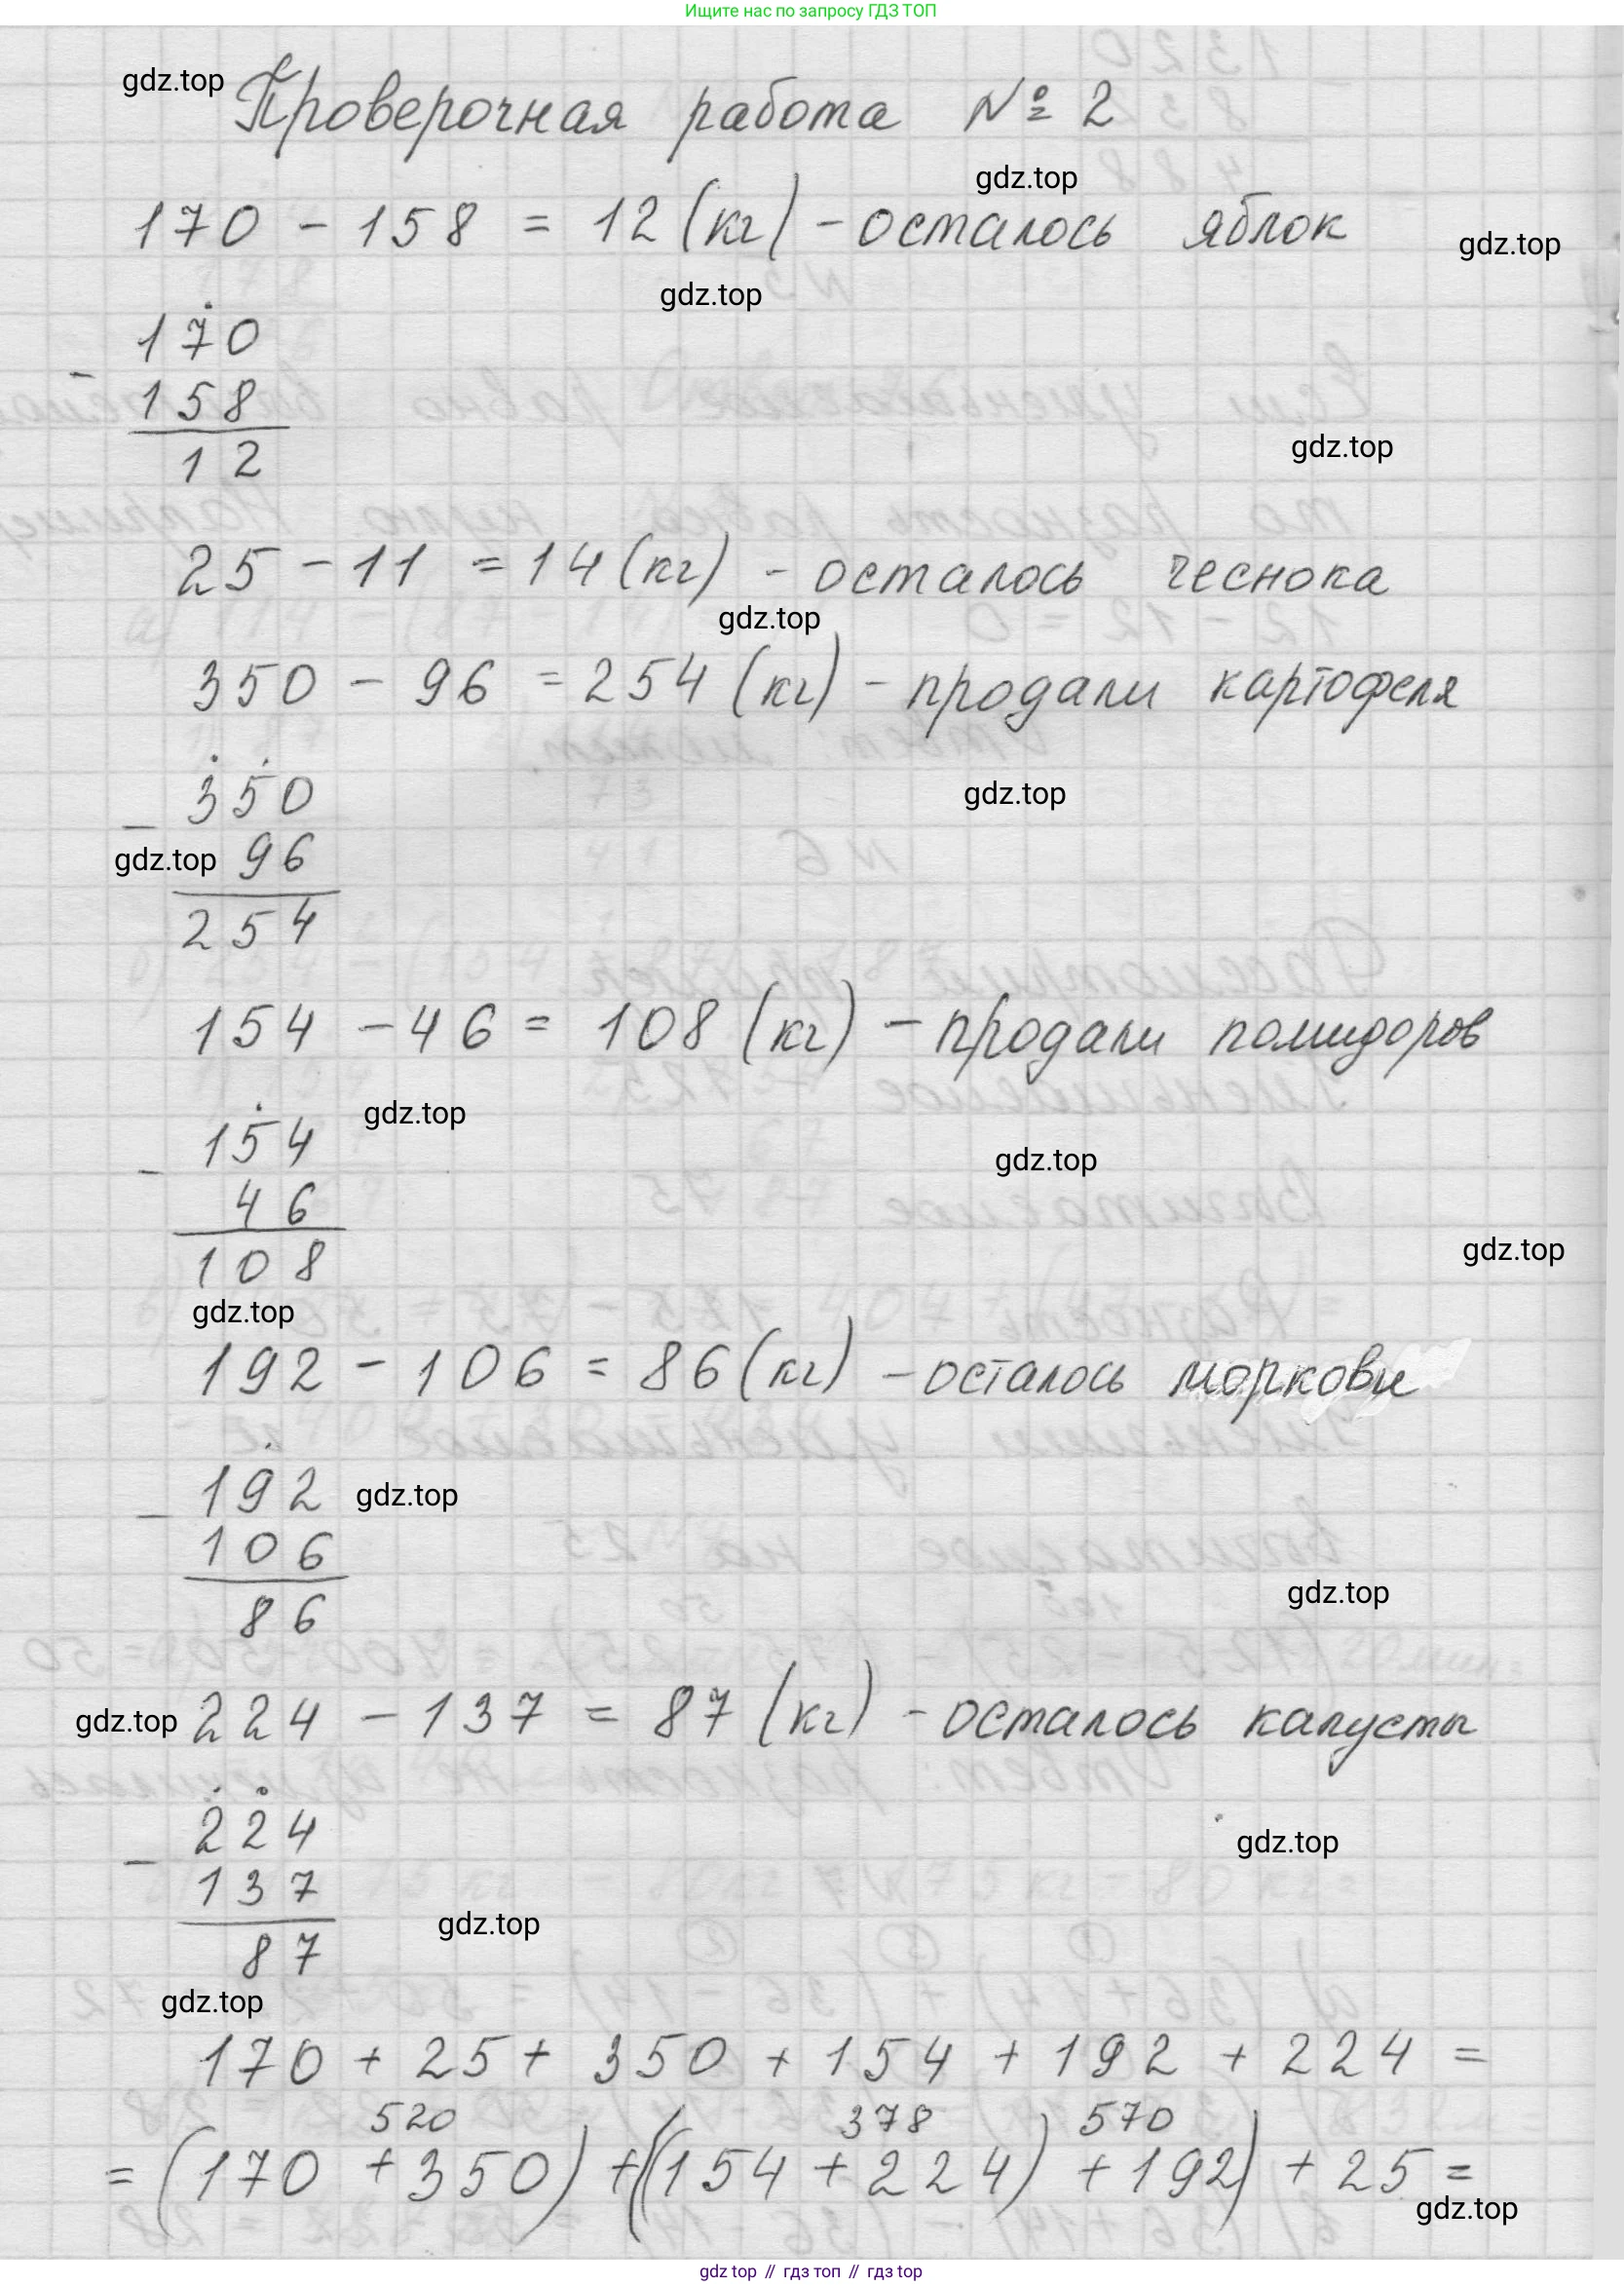 Ищите нас по запросу ГДЗ ТОП
gdz.top
Проверочная работа № 2
gdz.top
170 - 158 = 12 (кг) - осталось яблок
gdz.top
gdz.top
170
-
158
12
gdz.top
25 - 11 = 14 (кг) - осталось чеснока
gdz.top
350 - 96 = 254 (кг) - продали картофеля
350
gdz.top
-
gdz.top 96
254
154 - 46 = 108 (кг) - продали помидоров
gdz.top
154
-
gdz.top
46
gdz.top
108
gdz.top
192 - 106 = 86 (кг) - осталось моркови
192 gdz.top
-
106
gdz.top
86
gdz.top 224 - 137 = 87 (кг) - осталось капусты
224
gdz.top
-
137
gdz.top
87
gdz.top
170 + 25 + 350 + 154 + 192 + 224 =
520 378 570
= (170 + 350) + ((154 + 224) + 192) + 25 =
gdz.top
gdz top // гдз топ // gdz.top